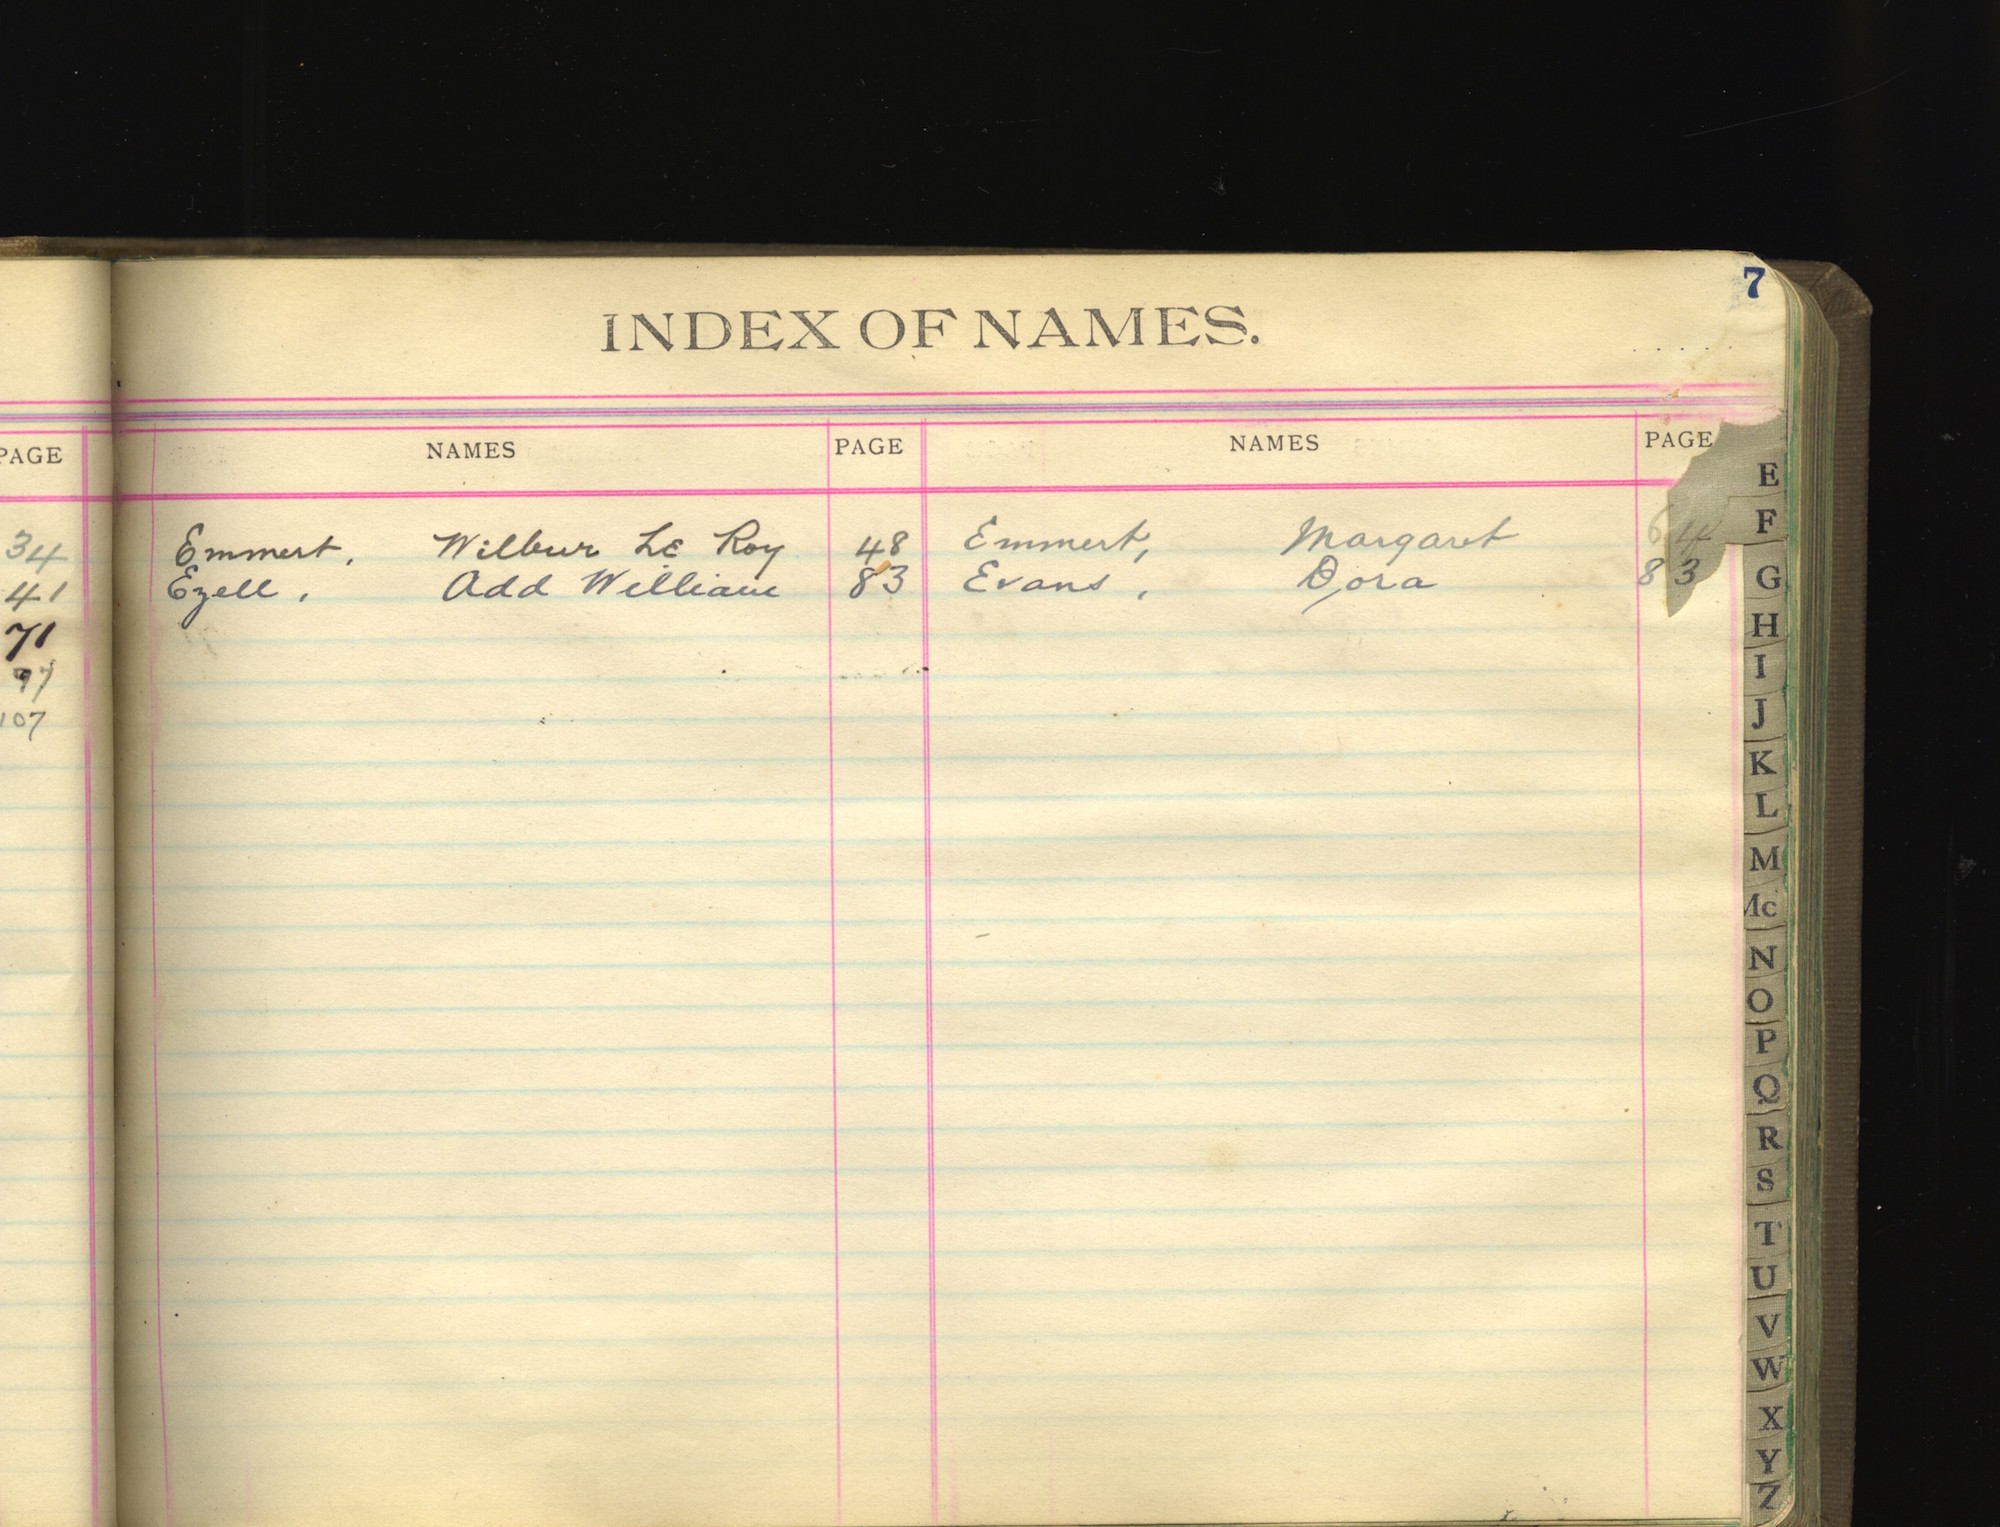 7
INDEX OF NAMES.
PAGE
NAMES PAGE NAMES PAGE
34
41
71
97
107
Emmert, Wilbur Le Roy 48 Emmert, Margaret 64
Ezell, Add William 83 Evans, Dora 83
E
F
G
H
I
J
K
L
M
Mc
N
O
P
Q
R
S
T
U
V
W
X
Y
Z